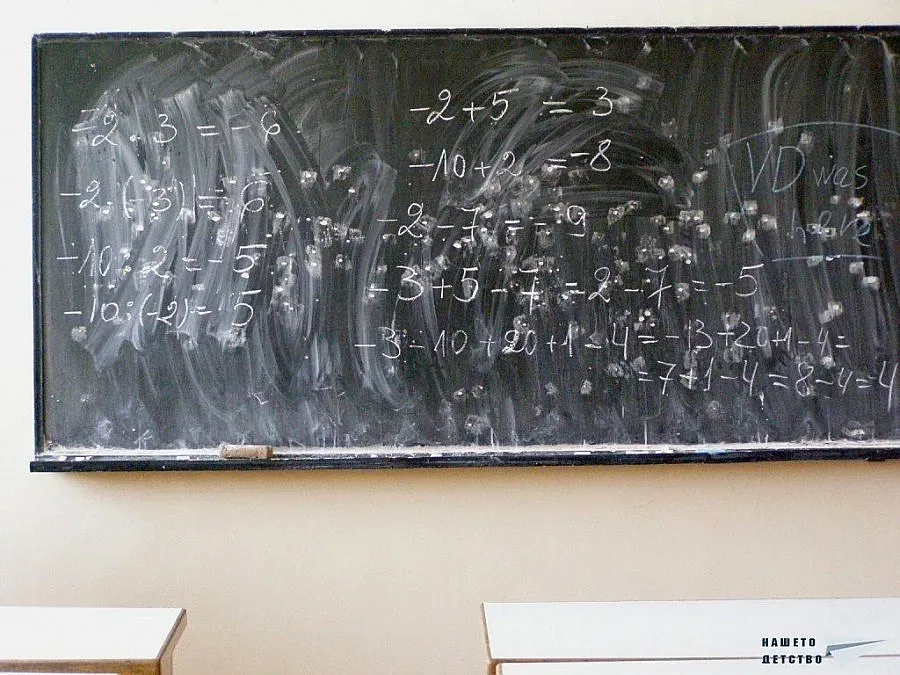 -2 · 3 = -6
-2 · (-3) = 6
-10 : 2 = -5
-10 : (-2) = 5
-2 + 5 = 3
-10 + 2 = -8
-2 - 7 = -9
-3 + 5 - 7 = 2 - 7 = -5
-3 - 10 + 20 + 1 - 4 = -13 + 20 + 1 - 4 =
= 7 + 1 - 4 = 8 - 4 = 4
VD was
here
НАШЕТО
ДЕТСТВО